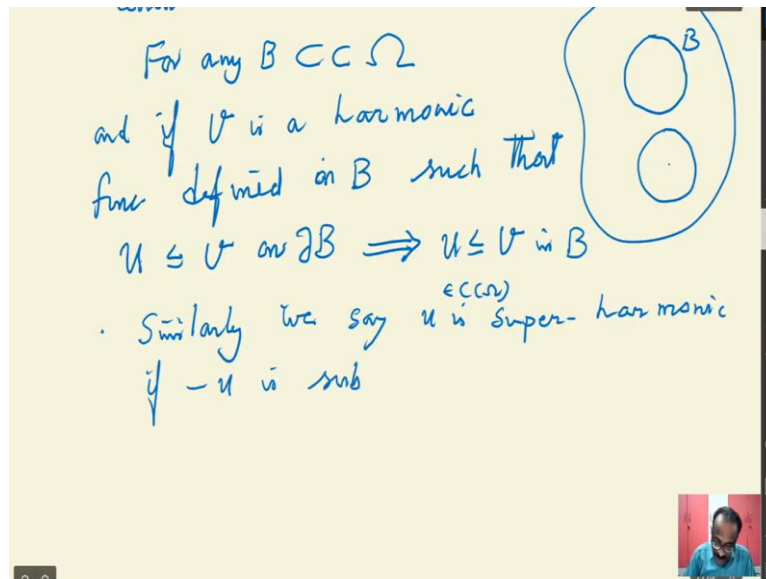 For any B ⊂⊂ Ω
B
and if v is a harmonic
func defined in B such that
u ≤ v on ∂B ⟹ u ≤ v in B
∈ C(Ω)
· Similarly we say u is Super-harmonic
if -u is sub